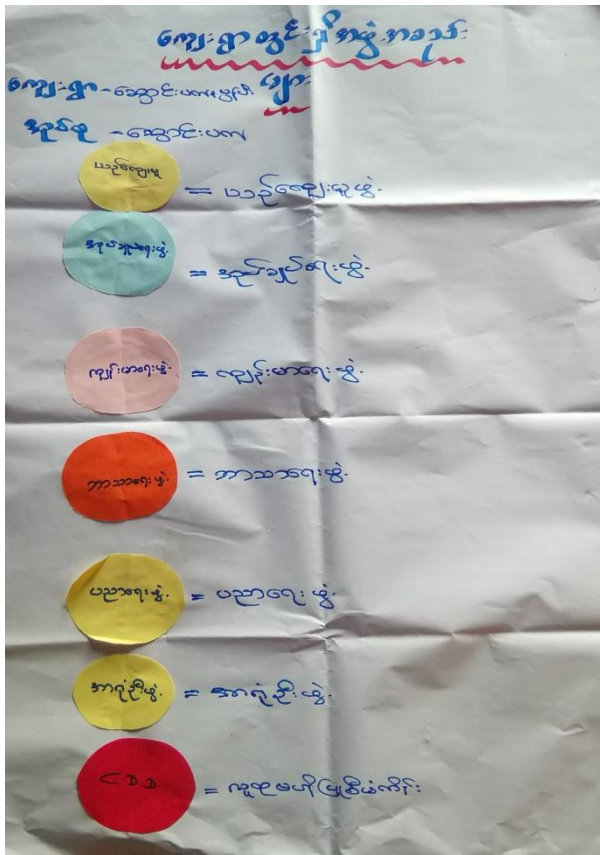 ကျေးရွာတွင်းရှိအဖွဲ့အစည်း
များ
ကျေးရွာ -ဆောင်းပက
အုပ်စု -ဆောင်းပက
= ယဉ်ကျေးမူဖွဲ့.
အုပ်ချုပ်ရေးဖွဲ့.
= အုပ်ချုပ်ရေးဖွဲ့.
ကျန်းမာရေးဖွဲ့.
= ကျန်းမာရေးဖွဲ့.
ဘာသာရေးဖွဲ့.
= ဘာသာရေးဖွဲ့.
ပညာရေးဖွဲ့.
= ပညာရေးဖွဲ့.
အာရုံဦးဖွဲ့.
= အာရုံဦးဖွဲ့.
CDD
= လူထုဗဟိုပြုစီမံကိန်း